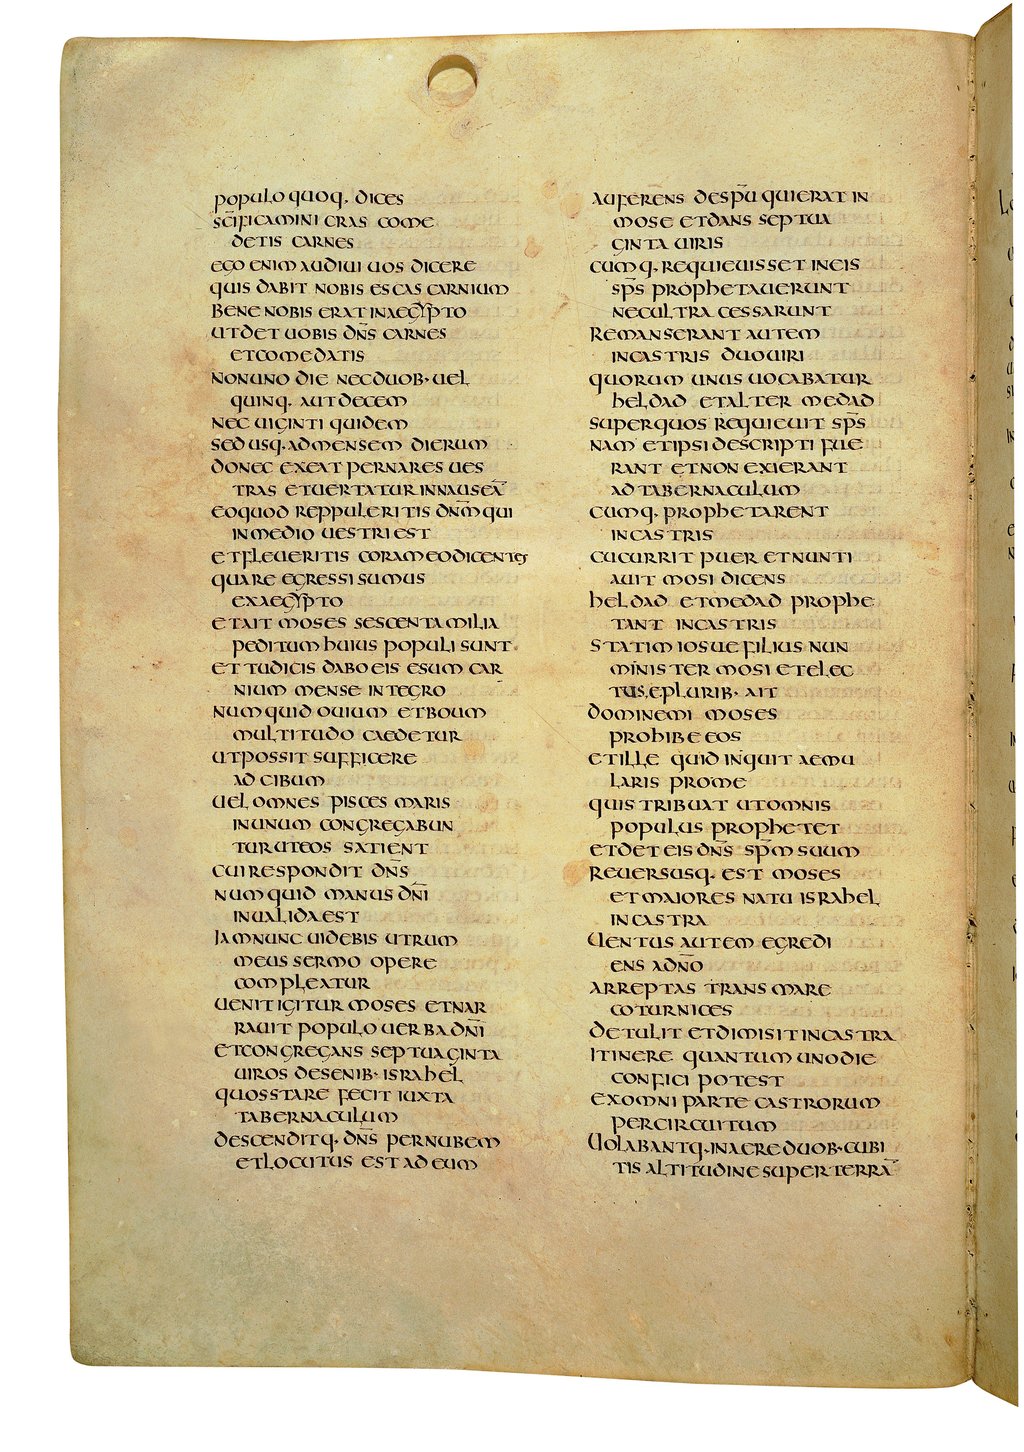 populo quoq. dices
sc̄ificamini cras come
detis carnes
ego enim audiui uos dicere
quis dabit nobis escas carnium
bene nobis erat in aegypto
ut det uobis dn̄s carnes
et comedatis
non uno die nec duob· uel
quinq. aut decem
nec uiginti quidem
sed usq. ad mensem dierum
donec exeat per nares ues
tras et uertatur in nauseā
eo quod reppuleritis dn̄m qui
in medio uestri est
et fleueritis coram eo dicentes
quare egressi sumus
ex aegypto
et ait moses sescenta milia
peditum huius populi sunt
et tu dicis dabo eis esum car
nium mense integro
numquid ouium et boum
multitudo caedetur
ut possit sufficere
ad cibum
uel omnes pisces maris
in unum congregabun
tur ut eos satient
cui respondit dn̄s
numquid manus dn̄i
inualida est
iam nunc uidebis utrum
meus sermo opere
compleatur
uenit igitur moses et nar
rauit populo uerba dn̄i
et congregans septuaginta
uiros de senib· israhel
quos stare fecit iuxta
tabernaculum
descenditq. dn̄s per nubem
et locutus est ad eum
auferens de spū qui erat in
mose et dans septua
ginta uiris
cumq. requieuisset in eis
sp̄s prophetauerunt
nec ultra cessarunt
remanserant autem
in castris duo uiri
quorum unus uocabatur
heldad et alter medad
super quos requieuit sp̄s
nam et ipsi descripti fue
rant et non exierant
ad tabernaculum
cumq. prophetarent
in castris
cucurrit puer et nunti
auit mosi dicens
heldad et medad prophe
tant in castris
statim iosue filius nun
minister mosi et elec
tus e plurib· ait
domine mi moses
prohibe eos
et ille quid inquit aemu
laris pro me
quis tribuat ut omnis
populus prophetet
et det eis dn̄s sp̄m suum
reuersusq. est moses
et maiores natu israhel
in castra
uentus autem egredi
ens a dn̄o
arreptas trans mare
coturnices
detulit et dimisit in castra
itinere quantum uno die
confici potest
ex omni parte castrorum
per circuitum
uolabantq. in aere duob· cubi
tis altitudine super terrā